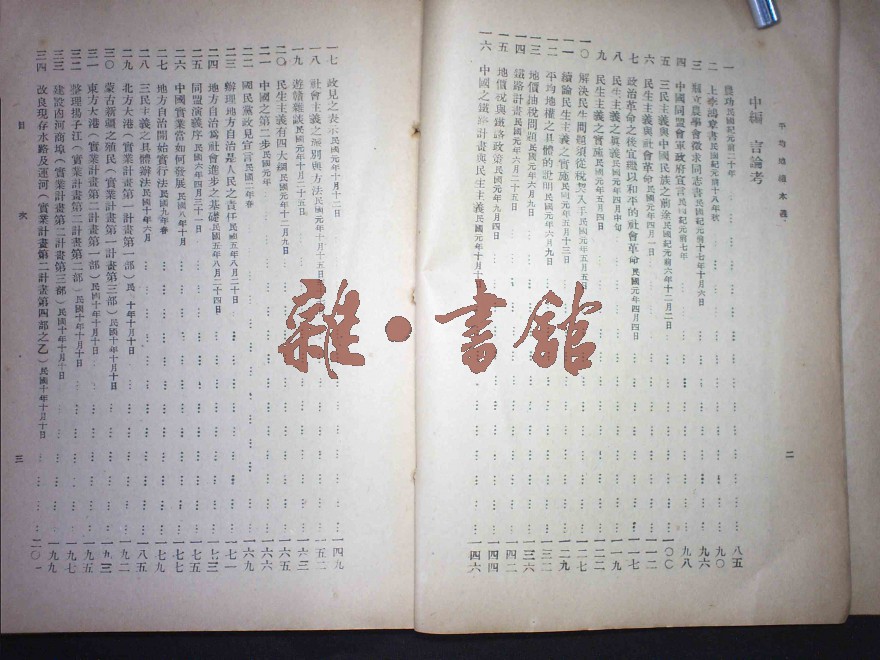 平均地權本義
二
中編 言論考
一 農功民國紀元前二十年 八五
二 上李鴻章書民國紀元前十八年秋 九〇
三 創立農學會徵求同志書民國紀元前十七年十月六日 九六
四 中國同盟會軍政府宣言民國紀元前七年 九八
五 三民主義與中國民族之前途民國紀元前六年十二月二日 一〇〇
六 民生主義與社會革命民國元年四月一日 一一二
七 政治革命之後宜繼以和平的社會革命民國元年四月四日 一一七
八 民生主義之眞義民國元年四月中旬 一一九
九 民生主義之實施民國元年五月四日 一二二
一〇 解決民生問題須從稅契入手民國元年五月五日 一二七
一一 續論民生主義之實施民國元年五月十三日 一二九
一二 平均地權之具體的說明民國元年六月九日 一三二
一三 地價抽稅問題民國元年六月九日 一三六
一四 鐵路計畫民國元年六月 一四二
一五 地價稅與鐵路政策民國元年 一四四
一六 中國之鐵路計畫與民生主義民國元年十月十日 一四六
一七 政見之表示民國元年十月十二日 一四九
一八 社會主義之派別與方法民國元年十月十五日 一五二
一九 遊贛雜談民國元年十月二十三日 一六三
二〇 民生主義有四大綱民國元年十二月九日 一六五
二一 中國之第二步民國元年 一六六
二二 國民黨政見宣言民國二年春 一六九
二三 辦理地方自治是人民之責任民國五年八月二十日 一七一
二四 地方自治爲社會進步之基礎民國五年八月二十四日 一七三
二五 同盟演義序民國六年四月三十一日 一七五
二六 中國實業當如何發展民國八年十月 一七七
二七 地方自治開始實行法民國九年春 一七七
二八 三民主義之具體辦法民國十年六月 一八五
二九 北方大港(實業計畫第一計畫第一部)民 十年十月十日 一九二
三〇 蒙古新疆之殖民(實業計畫第一計畫第三部)民國十年十月十日 一九三
三一 東方大港(實業計畫第二計畫第一部)民國十年十月十日 一九五
三二 整理揚子江(實業計畫第二計畫第二部)民國十年十月十日 一九七
三三 建設內河商埠(實業計畫第二計畫第三部)民國十年十月十日 一九九
三四 改良現存水路及運河(實業計畫第二計畫第四部之乙)民國十年十月十日 二〇一
目 次
三
雜・書館